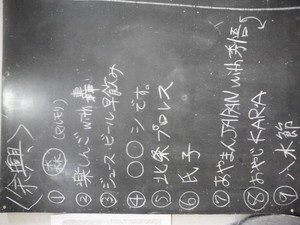 <余興>
① 森 (マルモリ)
② 楽しんご with
③ ジュース ビール 早飲み
④ 〇〇シです。
⑤ 北条プロレス
⑥ 氏子
⑦ あやまんJAPAN with 秀悟
⑧ おやじKARA
⑨ 八木節